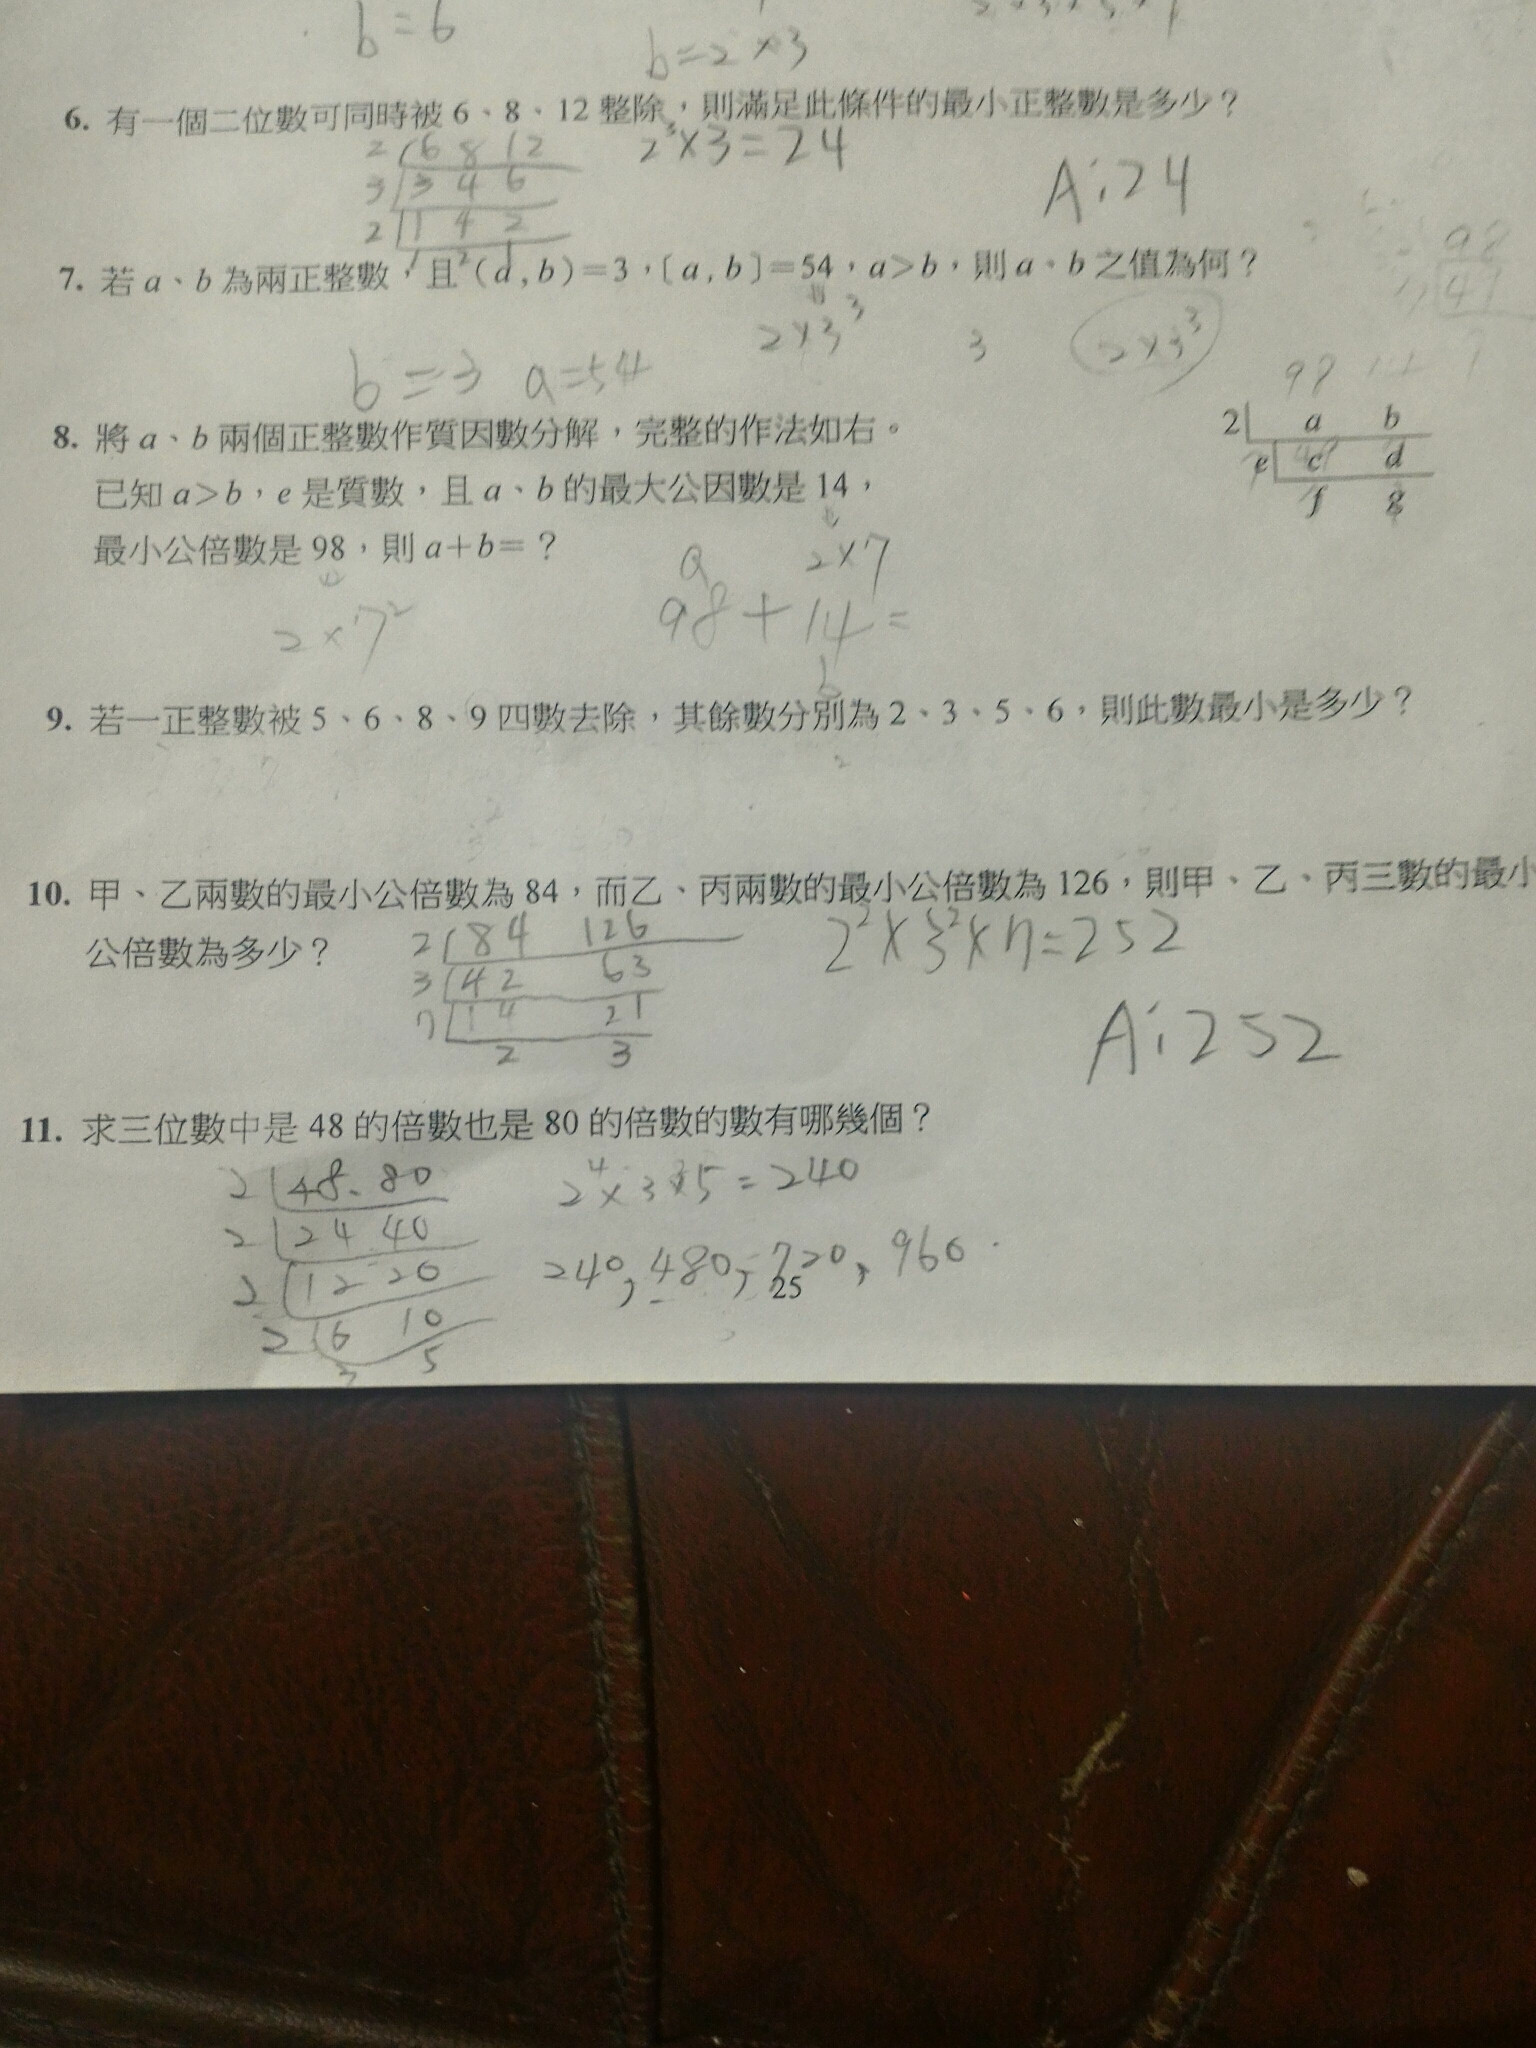 b=6
b=2×3
6. 有一個二位數可同時被 6、8、12 整除，則滿足此條件的最小正整數是多少？
2 6 8 12
3 3 4 6
2 1 4 2
1 2 1
2³×3=24
A:24
7. 若 a、b 為兩正整數，且 (a,b)=3，[a,b]=54，a>b，則 a、b 之值為何？
2×3³
3
2×3³
b=3 a=54
98
8. 將 a、b 兩個正整數作質因數分解，完整的作法如右。
已知 a>b，e 是質數，且 a、b 的最大公因數是 14，
最小公倍數是 98，則 a+b=？
98 14
2 a b
e c d
f g
2×7
2×7²
a
98+14=
b
9. 若一正整數被 5、6、8、9 四數去除，其餘數分別為 2、3、5、6，則此數最小是多少？
10. 甲、乙兩數的最小公倍數為 84，而乙、丙兩數的最小公倍數為 126，則甲、乙、丙三數的最小
公倍數為多少？
2 84 126
3 42 63
7 14 21
2 3
2²×3²×7=252
A:252
11. 求三位數中是 48 的倍數也是 80 的倍數的數有哪幾個？
2 48. 80
2 24 40
2 12 20
2 6 10
3 5
2⁴×3×5=240
240, 480, 720, 960.
25